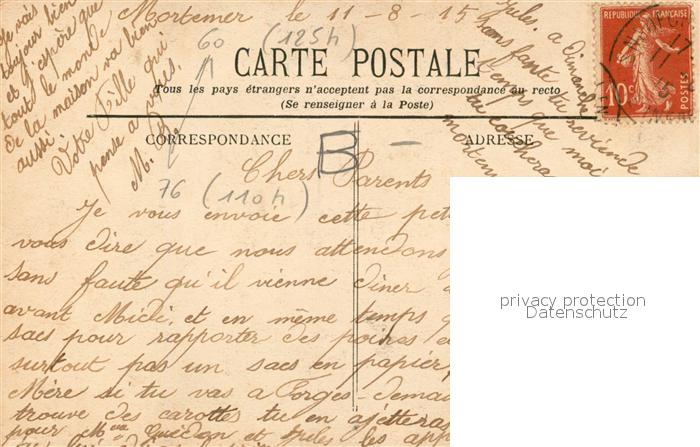 Mortemer le 11-8 15
60 (125h)
CARTE POSTALE
Tous les pays étrangers n'acceptent pas la correspondance au recto
(Se renseigner à la Poste)
CORRESPONDANCE
ADRESSE
B -
76 (110h)
REPUBLIQUE FRANÇAISE
10c
POSTES
Chers Parents
Je vous envoie cette
vous dire que nous attendons
sans faute qu'il vienne diner
avant Midi, et en même temps
sacs pour rapporter des poires
surtout pas un sacs en papier,
Mère si tu vas a Forges demai
trouve des carottes tu en ajettera
pour Mme et Jules les app
Jules, a Dimanche
sans faute tu reviendra
temps que moi
tu couchera
mortem
Je vais
toujour bien
et j'espère que
tout le monde
de la maison va bien
aussi.
Votre Fille qui
pense a vous.
privacy protection
Datenschutz